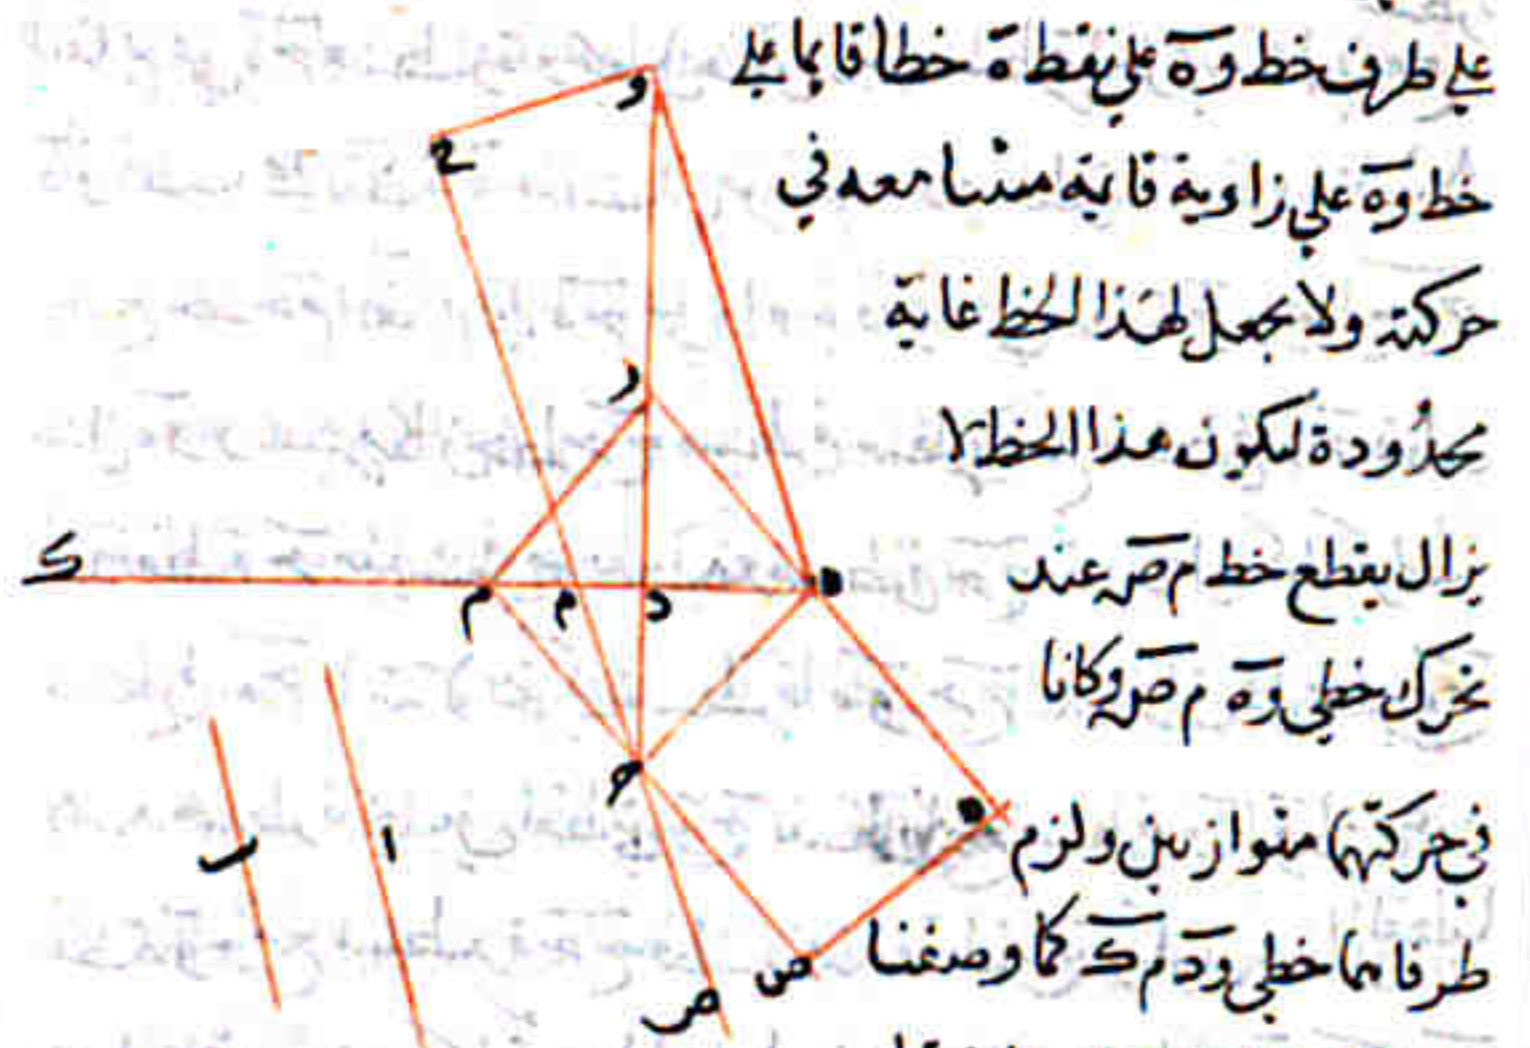 علي طرف خط وه علي نقطة ه خطا قايما علي
خط وه علي زاوية قايمة مشا معه في
حركته ولا يجعل لهذا الخط غاية
محدودة ليكون هذا الخط لا
يزال يقطع خط م ص عند
تحرك خطي وه م ص وكانا
في حركتهما متوازيين ولزم
طرفاهما خطي ود م ك كما وصفنا
و
ح
ر
ك
م
م
د
ه
ح
ه
ص
ص
ا
ب